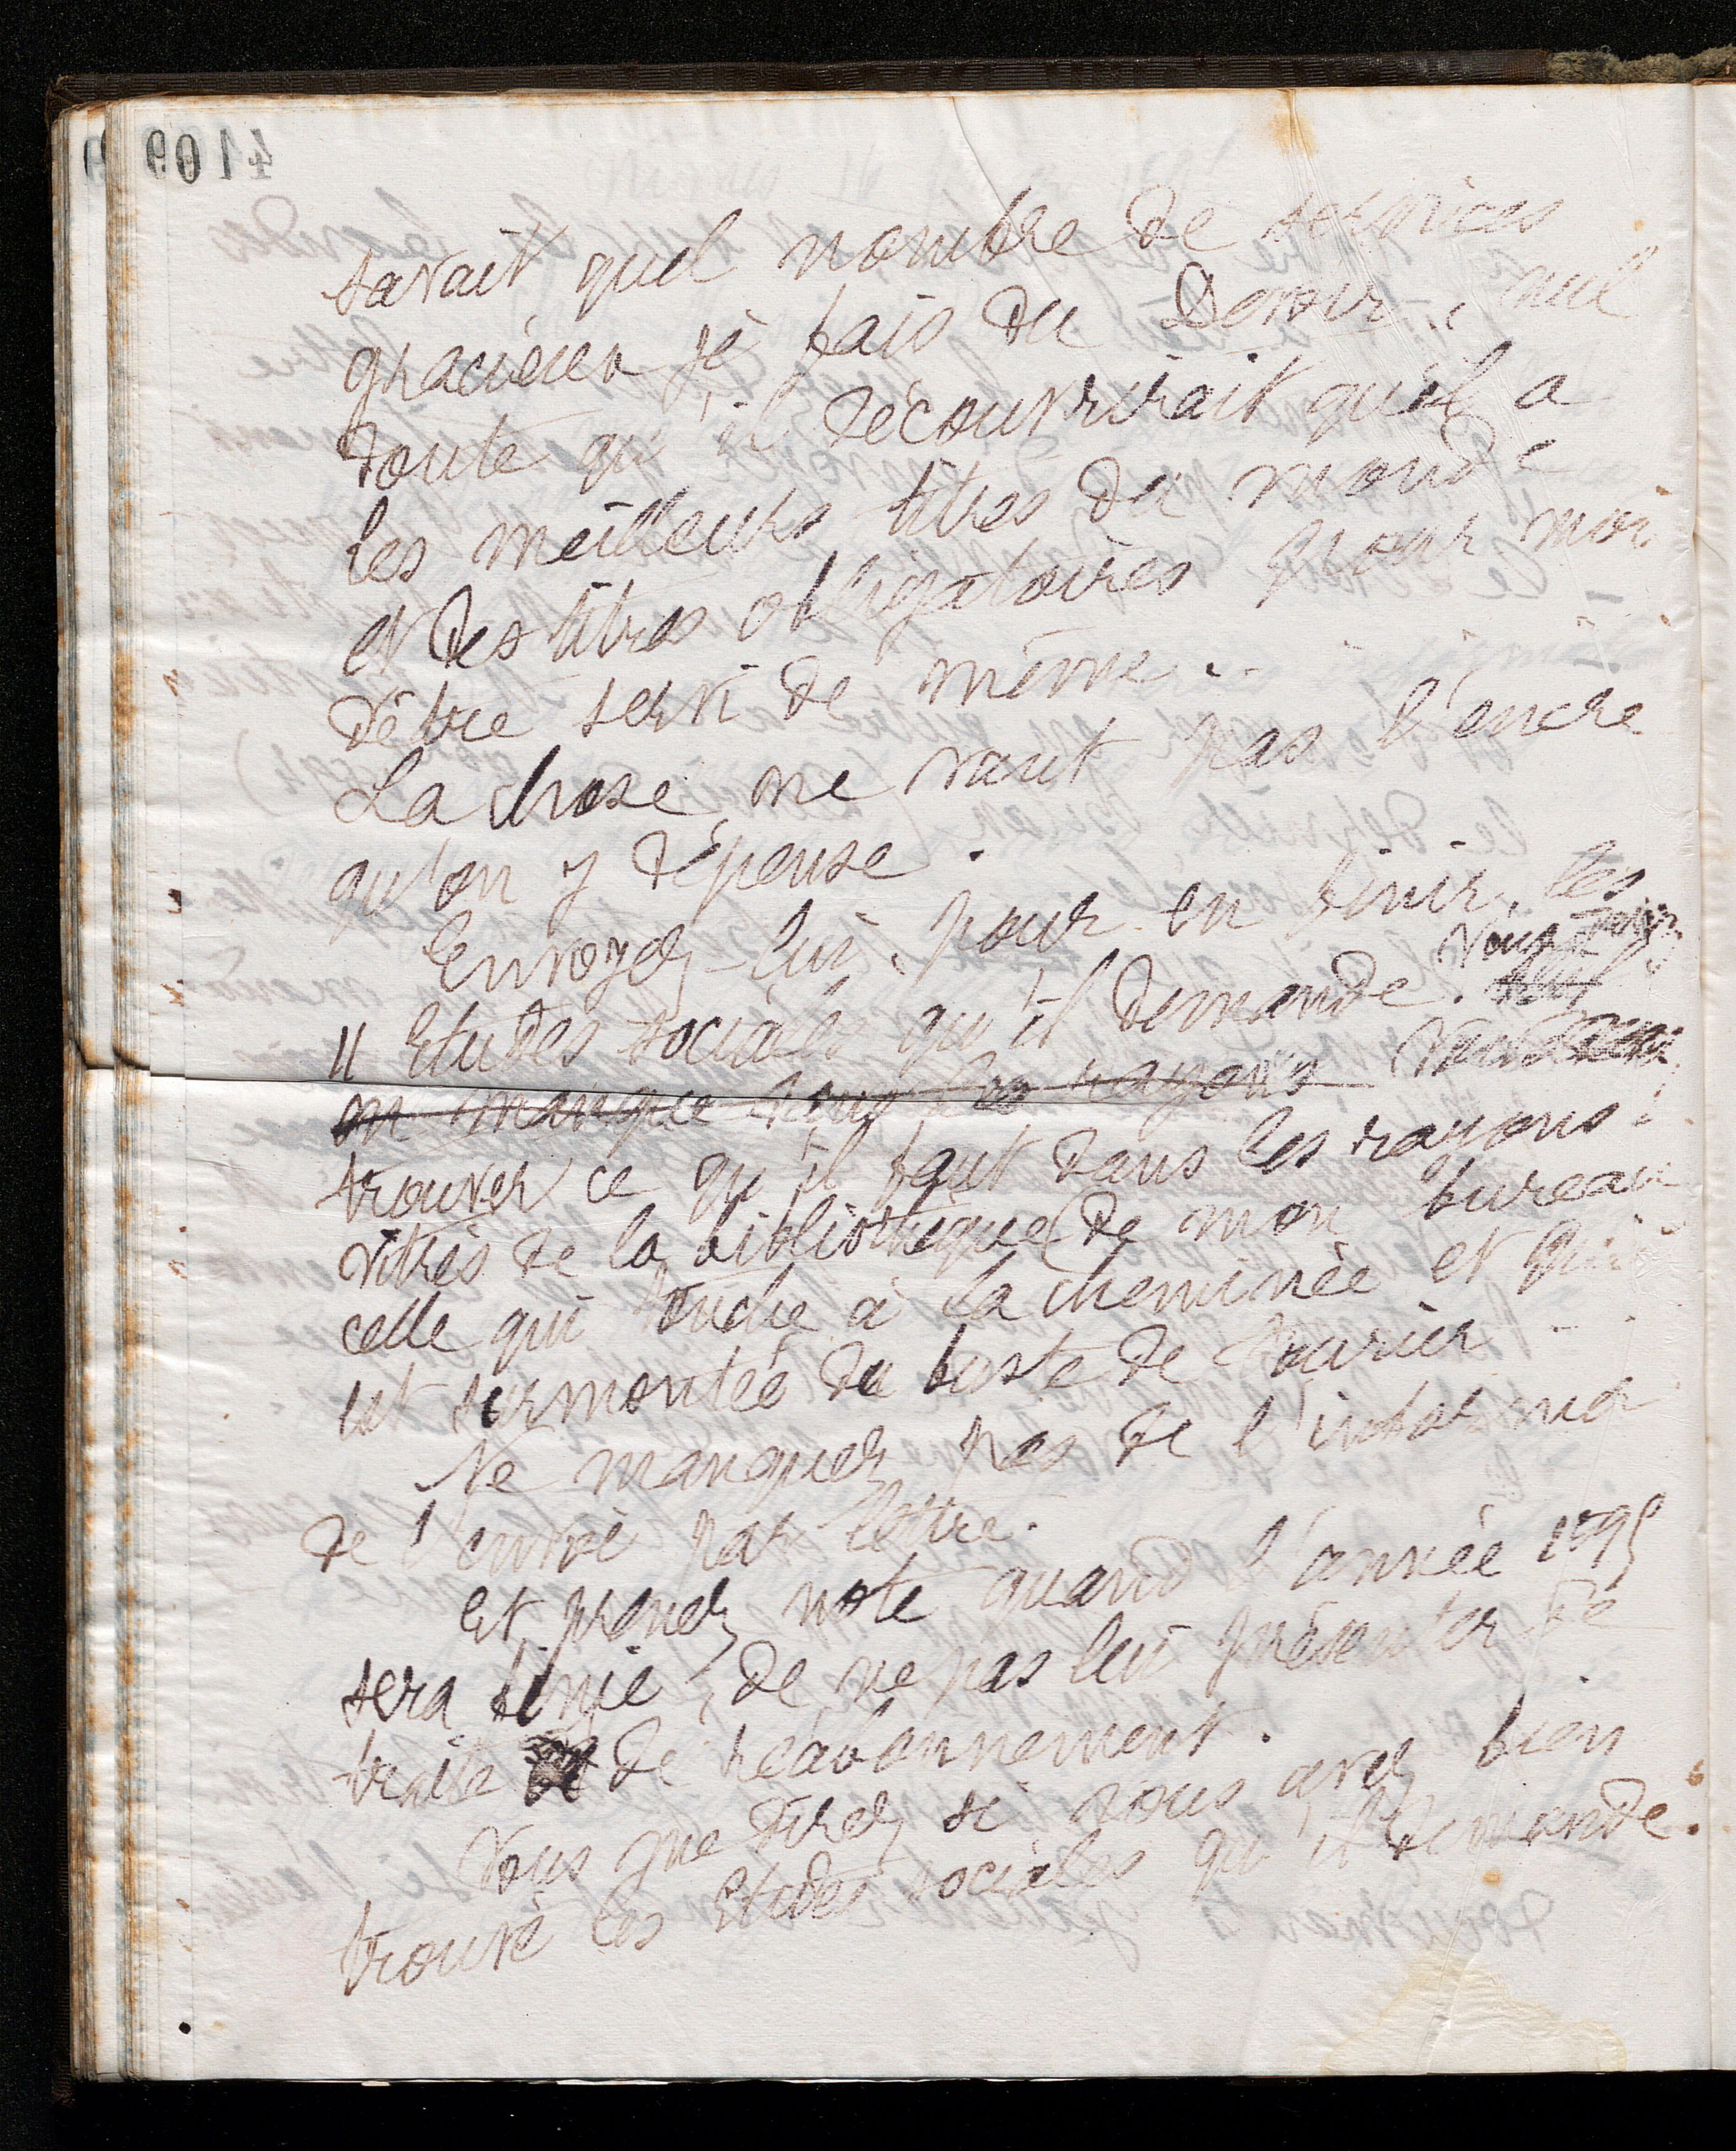 savait quel nombre de services
gracieux je fais du Devoir, nul
doute qu'il découvrirait qu'il a
les meilleurs titres du monde
et des titres obligatoires pour moi
d'être servi de même.
La chose ne vaut pas l'encre
qu'on y dépense.
Envoyez-lui, pour en finir, les
Vous
11 Etudes sociales qu'il demande.
on manque tous les rayons
trouver ce qu'il faut dans les rayons
vitrés de la bibliothèque de mon bureau
celle qui touche à la cheminée et qui
est surmontée du buste de Fourier.
Ne manquez pas de l'informer
de l'envoi par lettre.
Et prenez note quand l'année 1895
sera finie, de ne pas lui présenter de
traite de réabonnement.
Vous me direz si vous avez bien
trouvé les Etudes sociales qu'il demande.
4109